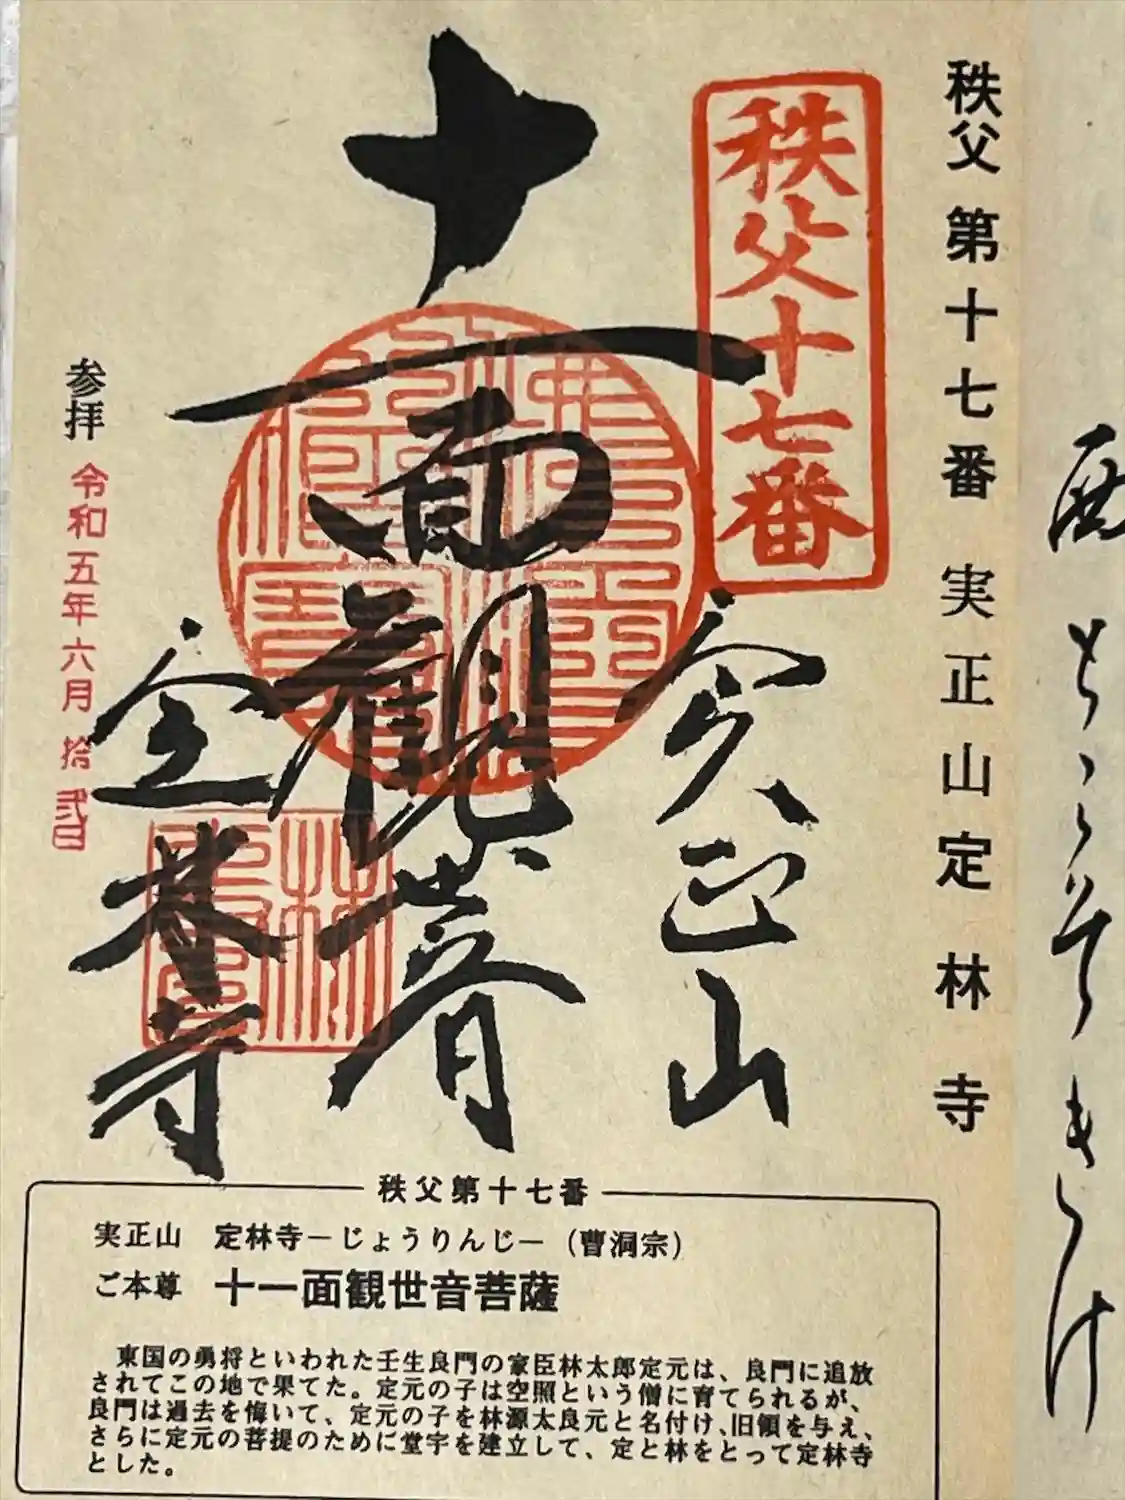 秩父第十七番 実正山定林寺
秩父十七番
実正山
十一面観音
定林寺
参拝 令和五年六月拾弐日
秩父第十七番
実正山 定林寺－じょうりんじ－（曹洞宗）
ご本尊 十一面観世音菩薩
東国の勇将といわれた壬生良門の家臣林太郎定元は、良門に追放
されてこの地で果てた。定元の子は空照という僧に育てられるが、
良門は過去を悔いて、定元の子を林源太良元と名付け、旧領を与え、
さらに定元の菩提のために堂宇を建立して、定と林をとって定林寺
とした。